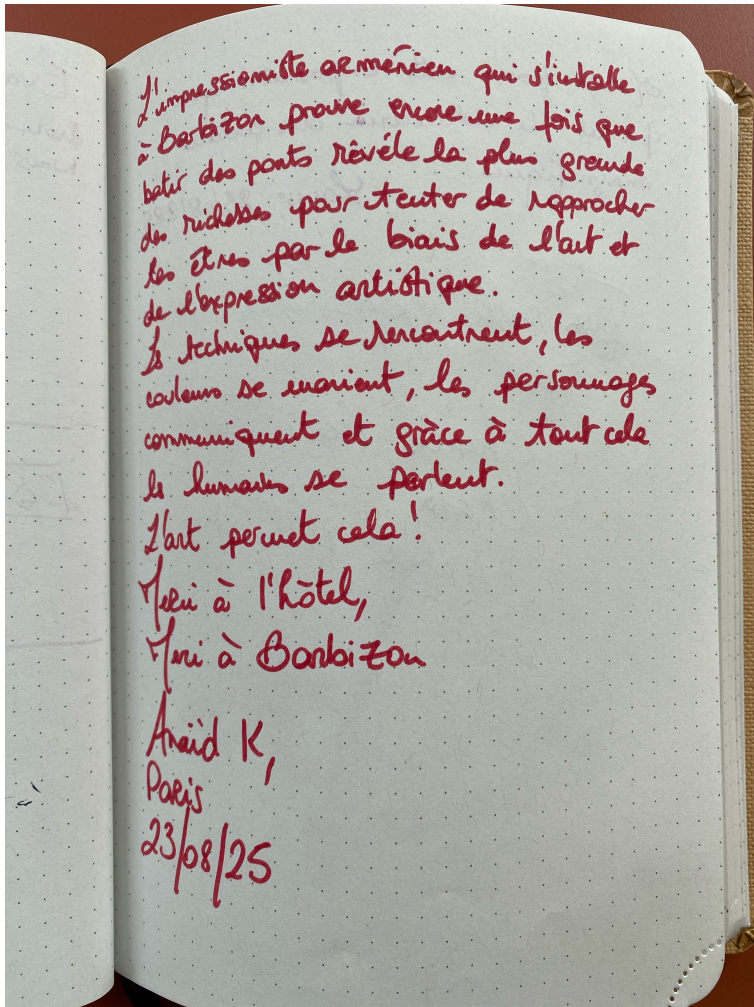 L'impressionniste arménien qui s'installe
à Barbizon prouve encore une fois que
batir des ponts révéle la plus grande
des richesses pour tenter de rapprocher
les êtres par le biais de l'art et
de l'expression artistique.
Les techniques se rencontrent, les
couleurs se marient, les personnages
communiquent et grâce à tout cela
les humains se parlent.
L'art permet cela !
Merci à l'hôtel,
Merci à Barbizon
Anaïd K,
Paris
23/08/25